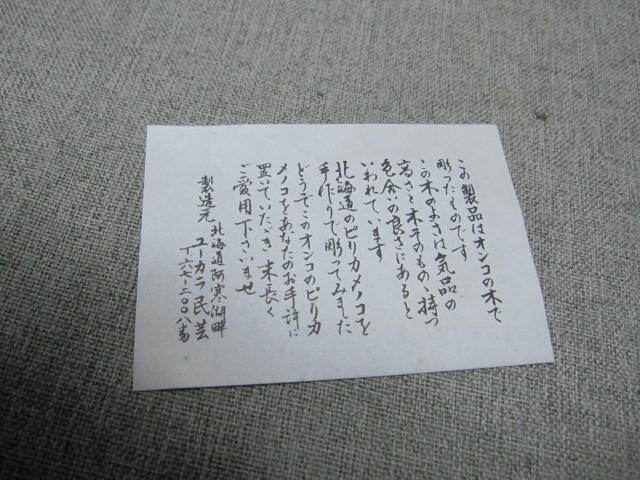 この製品はオンコの木で
彫ったものです
この木のよさは気品の
高さと木そのもの、持つ
色合の良さにあると
いわれています
北海道のピリカメノコを
手作りで彫ってみました
どうぞこのオンコのピリカ
メノコをあなたのお手許に
置いていただき末長く
ご愛用下さいませ
製造元 北海道阿寒湖畔
ユーカラ民芸